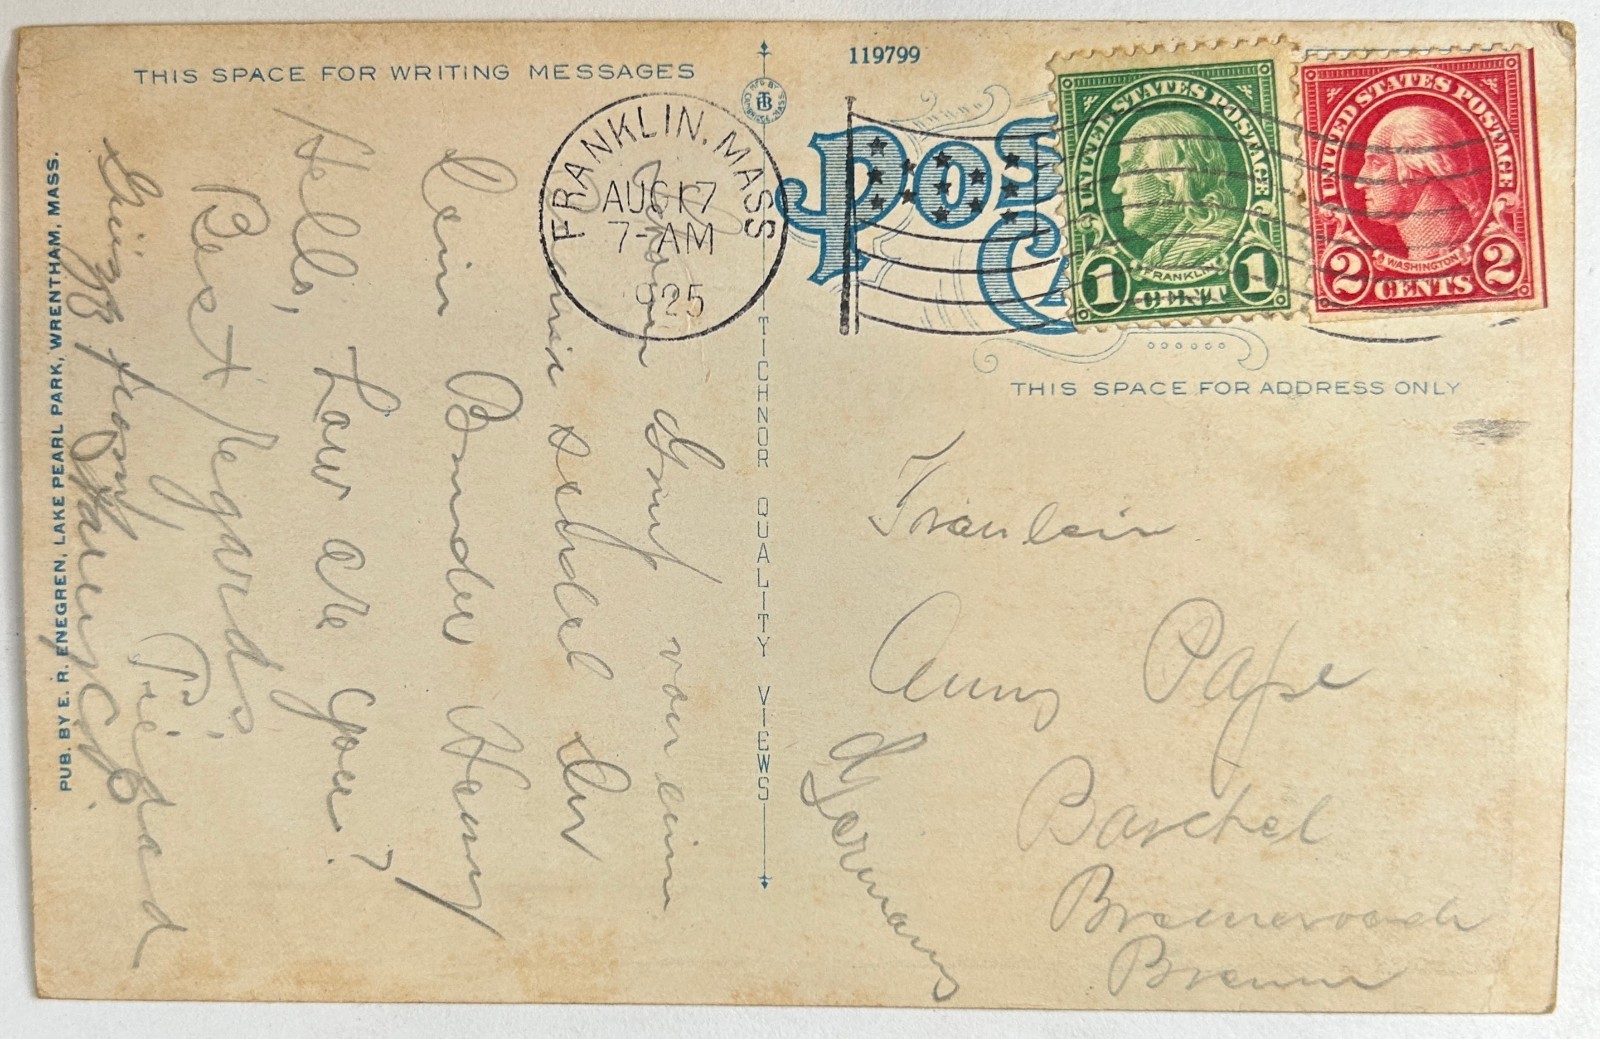 THIS SPACE FOR WRITING MESSAGES
119799
MFG. BY
TB
CAMBRIDGE, MASS.
FRANKLIN, MASS
AUG 17
7-AM
1925
PO
CA
UNITED STATES POSTAGE
FRANKLIN
1 CENT 1
UNITED STATES POSTAGE
WASHINGTON
2 CENTS 2
THIS SPACE FOR ADDRESS ONLY
Gruß von eim
sendet Dir
Dein Bruder Henry
Hello, How are you?
Best Regards,
from
PUB. BY E. R. ENEGREN, LAKE PEARL PARK, WRENTHAM, MASS.
TICHNOR QUALITY VIEWS
Fraulein
Anny Pape
Barchel
Germany